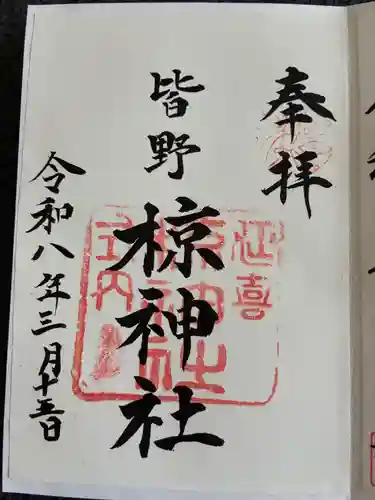 奉拝
皆野
椋神社
令和八年三月十五日
延喜
式内
椋神社